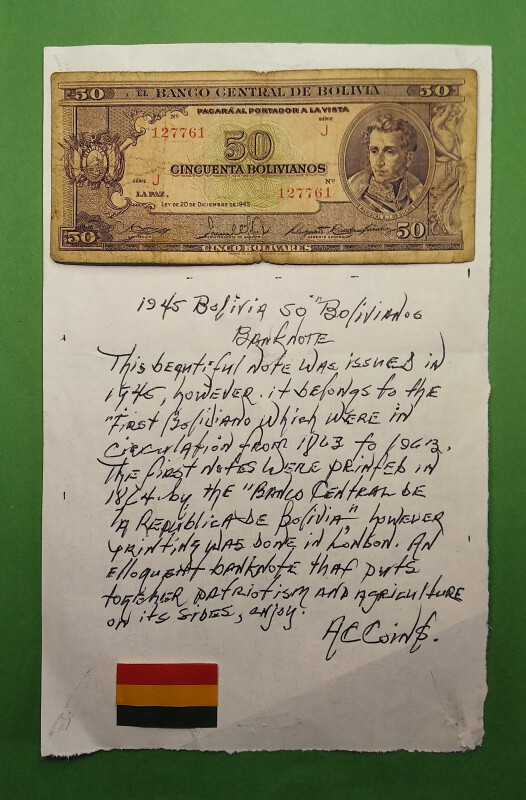 50 EL BANCO CENTRAL DE BOLIVIA 50
PAGARÁ AL PORTADOR A LA VISTA
Nº SERIE
127761 50 J
CINCUENTA BOLIVIANOS
SERIE J Nº
LA PAZ, 127761
LEY DE 20 DE DICIEMBRE DE 1945
50 50
CINCO BOLIVARES
1945 Bolivia 50 "Bolivianos
Banknote
This beautiful note was issued in
1945, however. it belongs to the
"First Boliviano which were in
circulation from 1863 to 1963.
The first notes were printed in
1864. by the "Banco Central de
la República de Bolivia", however
printing was done in London. An
elloquent banknote that puts
together patriotism and agriculture
on its sides, enjoy.
ACCoin$.